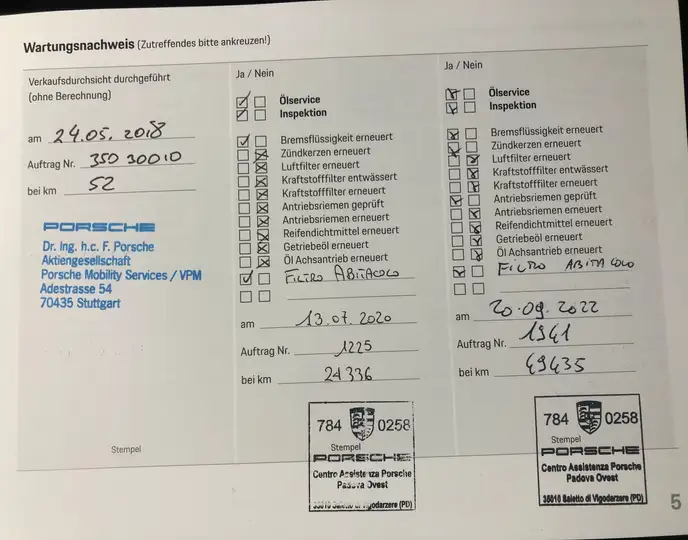 Wartungsnachweis (Zutreffendes bitte ankreuzen!)
Verkaufsdurchsicht durchgeführt
(ohne Berechnung)
am 24.05.2018
Auftrag Nr. 350 30010
bei km 52
PORSCHE
Dr. Ing. h.c. F. Porsche
Aktiengesellschaft
Porsche Mobility Services / VPM
Adestrasse 54
70435 Stuttgart
Stempel
Ja / Nein
Ölservice
Inspektion
Bremsflüssigkeit erneuert
Zündkerzen erneuert
Luftfilter erneuert
Kraftstofffilter entwässert
Kraftstofffilter erneuert
Antriebsriemen geprüft
Antriebsriemen erneuert
Reifendichtmittel erneuert
Getriebeöl erneuert
Öl Achsantrieb erneuert
FILTRO ABITACOLO
am 13.07.2020
Auftrag Nr. 1225
bei km 24336
784 0258
Stempel
PORSCHE
Centro Assistenza Porsche
Padova Ovest
35010 Saletto di Vigodarzere (PD)
Ja / Nein
Ölservice
Inspektion
Bremsflüssigkeit erneuert
Zündkerzen erneuert
Luftfilter erneuert
Kraftstofffilter entwässert
Kraftstofffilter erneuert
Antriebsriemen geprüft
Antriebsriemen erneuert
Reifendichtmittel erneuert
Getriebeöl erneuert
Öl Achsantrieb erneuert
FILTRO ABITACOLO
am 20.09.2022
Auftrag Nr. 1941
bei km 49435
784 0258
Stempel
PORSCHE
Centro Assistenza Porsche
Padova Ovest
35010 Saletto di Vigodarzere (PD)
5